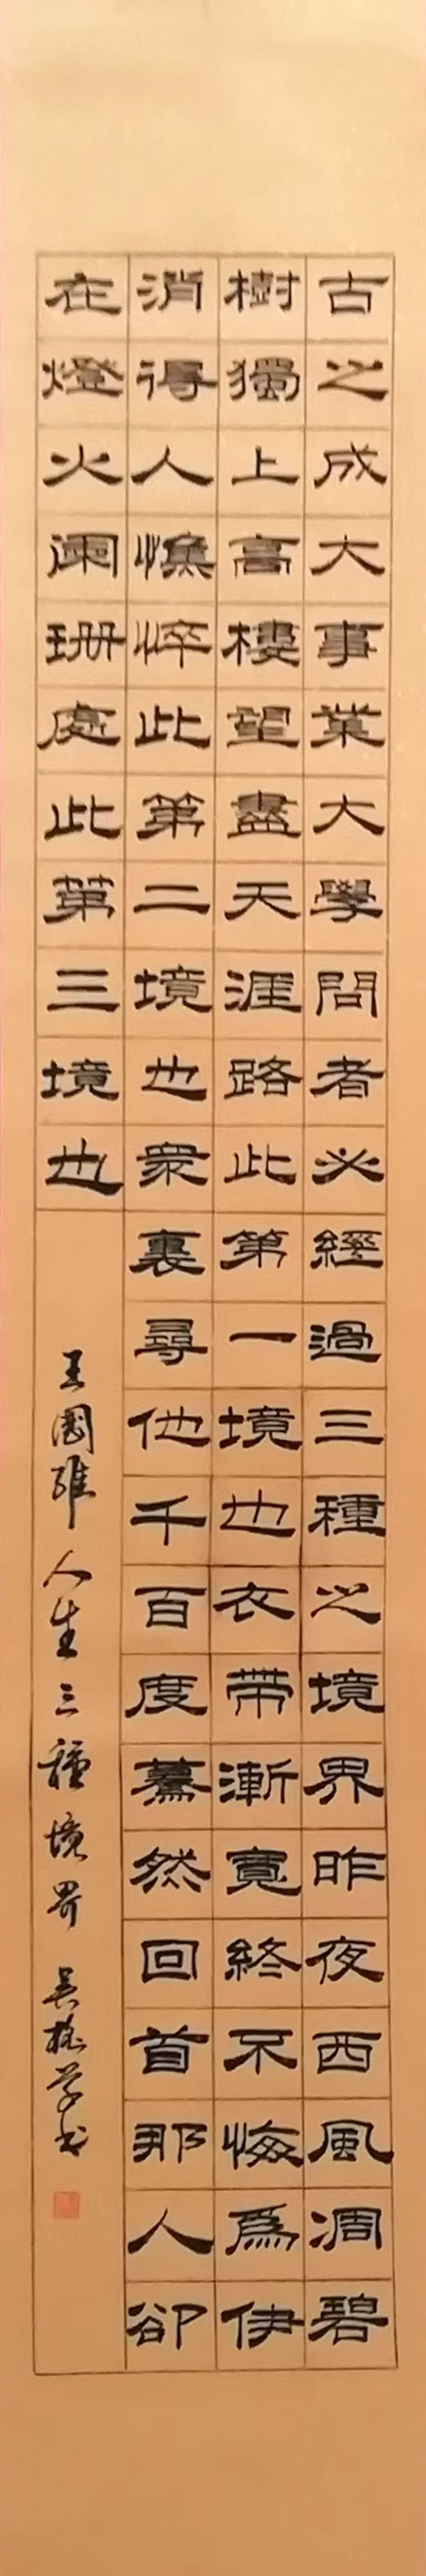 古之成大事業大學問者必經過三種之境界昨夜西風凋碧
樹獨上高樓望盡天涯路此第一境也衣帶漸寬終不悔爲伊
消得人憔悴此第二境也衆裏尋他千百度驀然回首那人卻
在燈火阑珊處此第三境也
王國維人生三種境界 吳